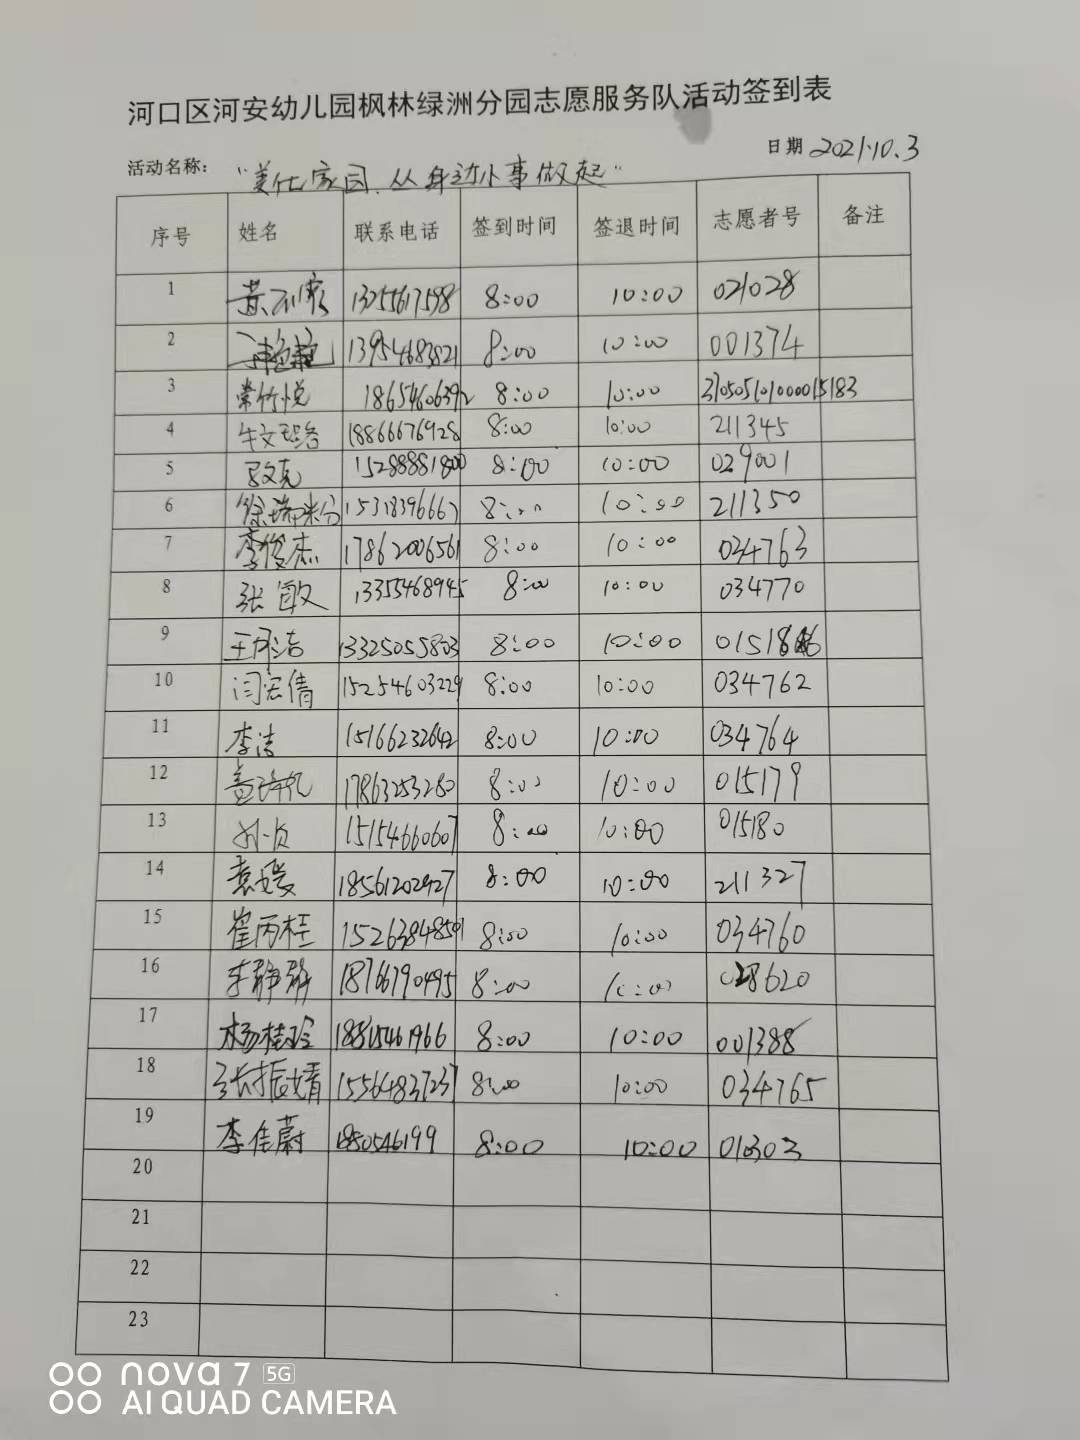 河口区河安幼儿园枫林绿洲分园志愿服务队活动签到表
活动名称： "美化家园.从身边小事做起" 日期 2021.10.3
序号 姓名 联系电话 签到时间 签退时间 志愿者号 备注
1 13255617598 8:00 10:00 021028
2 13954683821 8:00 10:00 001374
3 常竹悦 18654606392 8:00 10:00 370505101000015183
4 18866676928 8:00 10:00 211345
5 15288881800 8:00 10:00 029001
6 15318396667 8:00 10:00 211350
7 李俊杰 17862006561 8:00 10:00 034763
8 张敏 13355468945 8:00 10:00 034770
9 13325055803 8:00 10:00
10 闫宏倩 15254603229 8:00 10:00 034762
11 李洁 15166232642 8:00 10:00 034764
12 17863253280 8:00 10:00 015179
13 孙贞 15154660607 8:00 10:00 015180
14 袁媛 18561202927 8:00 10:00 211327
15 崔丙桂 15263848501 8:00 10:00 034760
16 李静静 18766790495 8:00 10:00 028620
17 杨桂玲 18815461966 8:00 10:00 001388
18 张振婧 15564837237 8:00 10:00 034765
19 李佳蔚 8:00 10:00
20
21
22
23
nova 7 5G
AI QUAD CAMERA